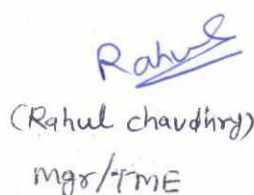 Rahul
(Rahul chaudhry)
Mgr/TME